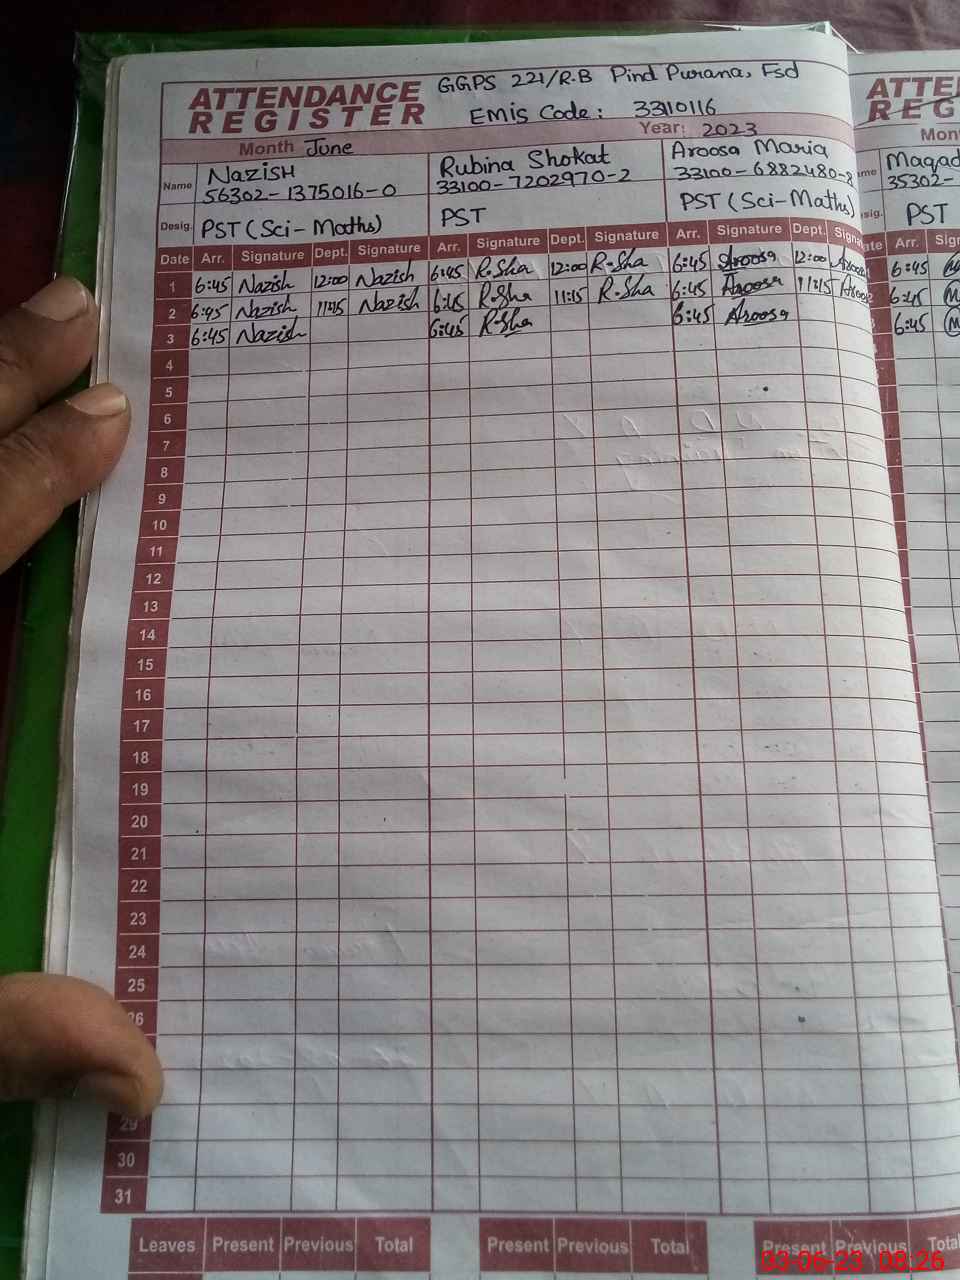 ATTENDANCE REGISTER GGPS 221/R.B Pind Purana, Fsd
EMIS Code: 33110116
Month June Year: 2023
Name Nazish Rubina Shokat Aroosa Maria
56302-1375016-0 33100-7202970-2 33100-6882480-8 35302-
Desig. PST (Sci-Maths) PST PST (Sci-Maths) PST
Date Arr. Signature Dept. Signature Arr. Signature Dept. Signature Arr. Signature Dept. Arr.
1 6:45 Nazish 12:00 Nazish 6:45 R-Sha 12:00 R-Sha 6:45 Aroosa 12:00 Aroosa 6:45
2 6:45 Nazish 11:15 Nazish 6:45 R-Sha 11:15 R-Sha 6:45 Aroosa 11:15 Aroosa 6:45
3 6:45 Nazish 6:45 R-Sha 6:45 Aroosa 6:45
4
5
6
7
8
9
10
11
12
13
14
15
16
17
18
19
20
21
22
23
24
25
26
29
30
31
Leaves Present Previous Total Present Previous Total Present Previous Total
03-06-23 08:26